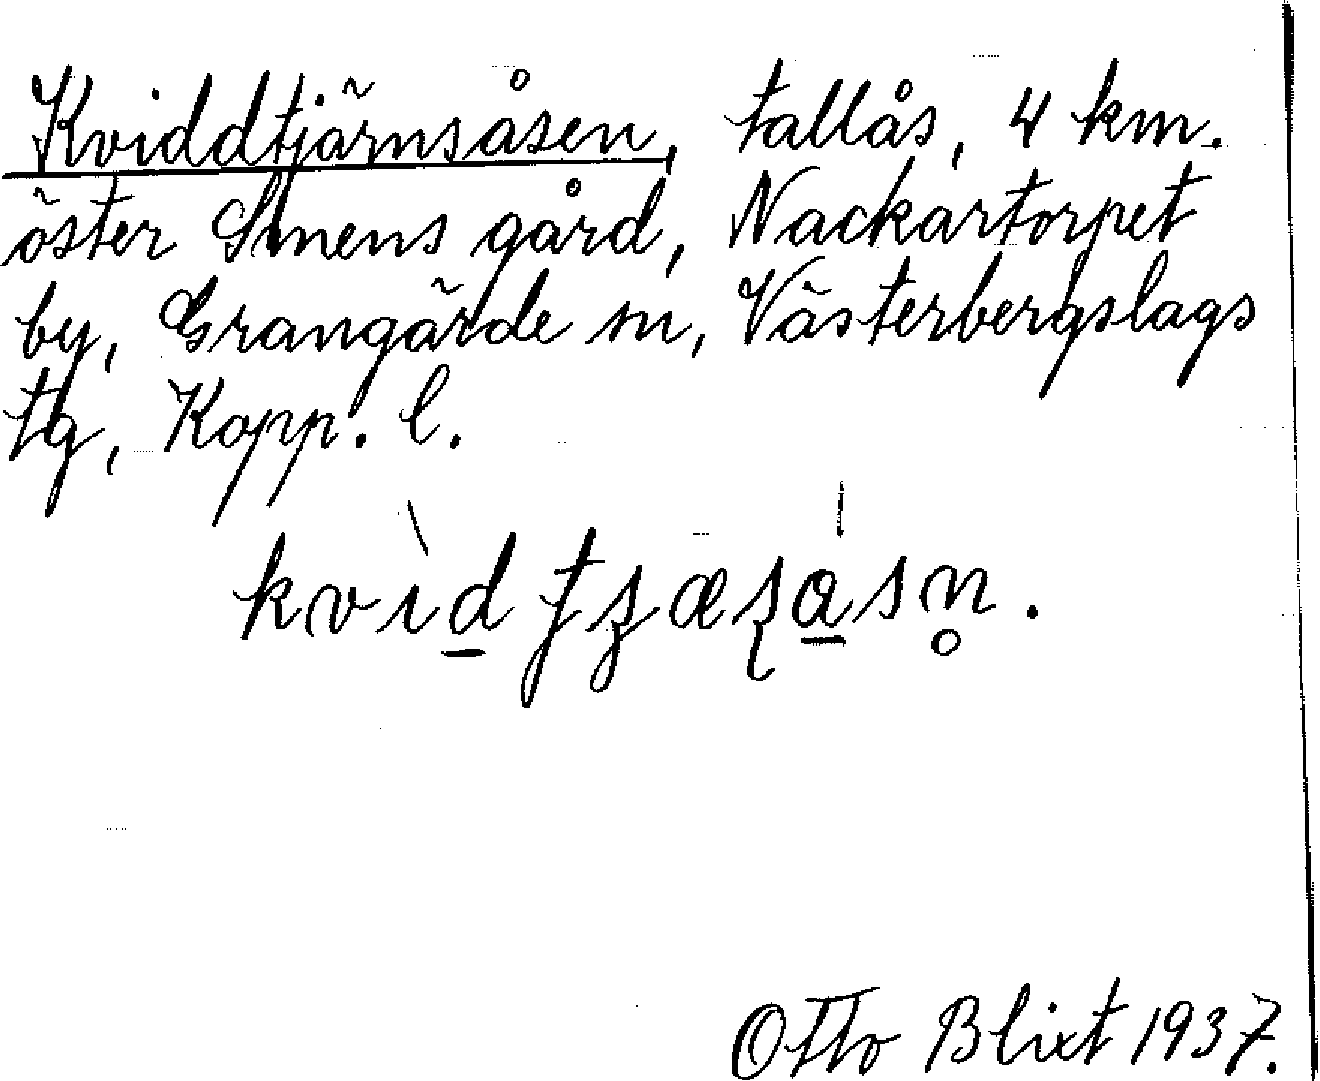 Kviddtjärnsåsen, tallås, 4 km.
öster Simens gård, Nackartorpet
by, Grangärde sn, Västerbergslags
tg, Kopp. l.
Otto Blixt 1937.